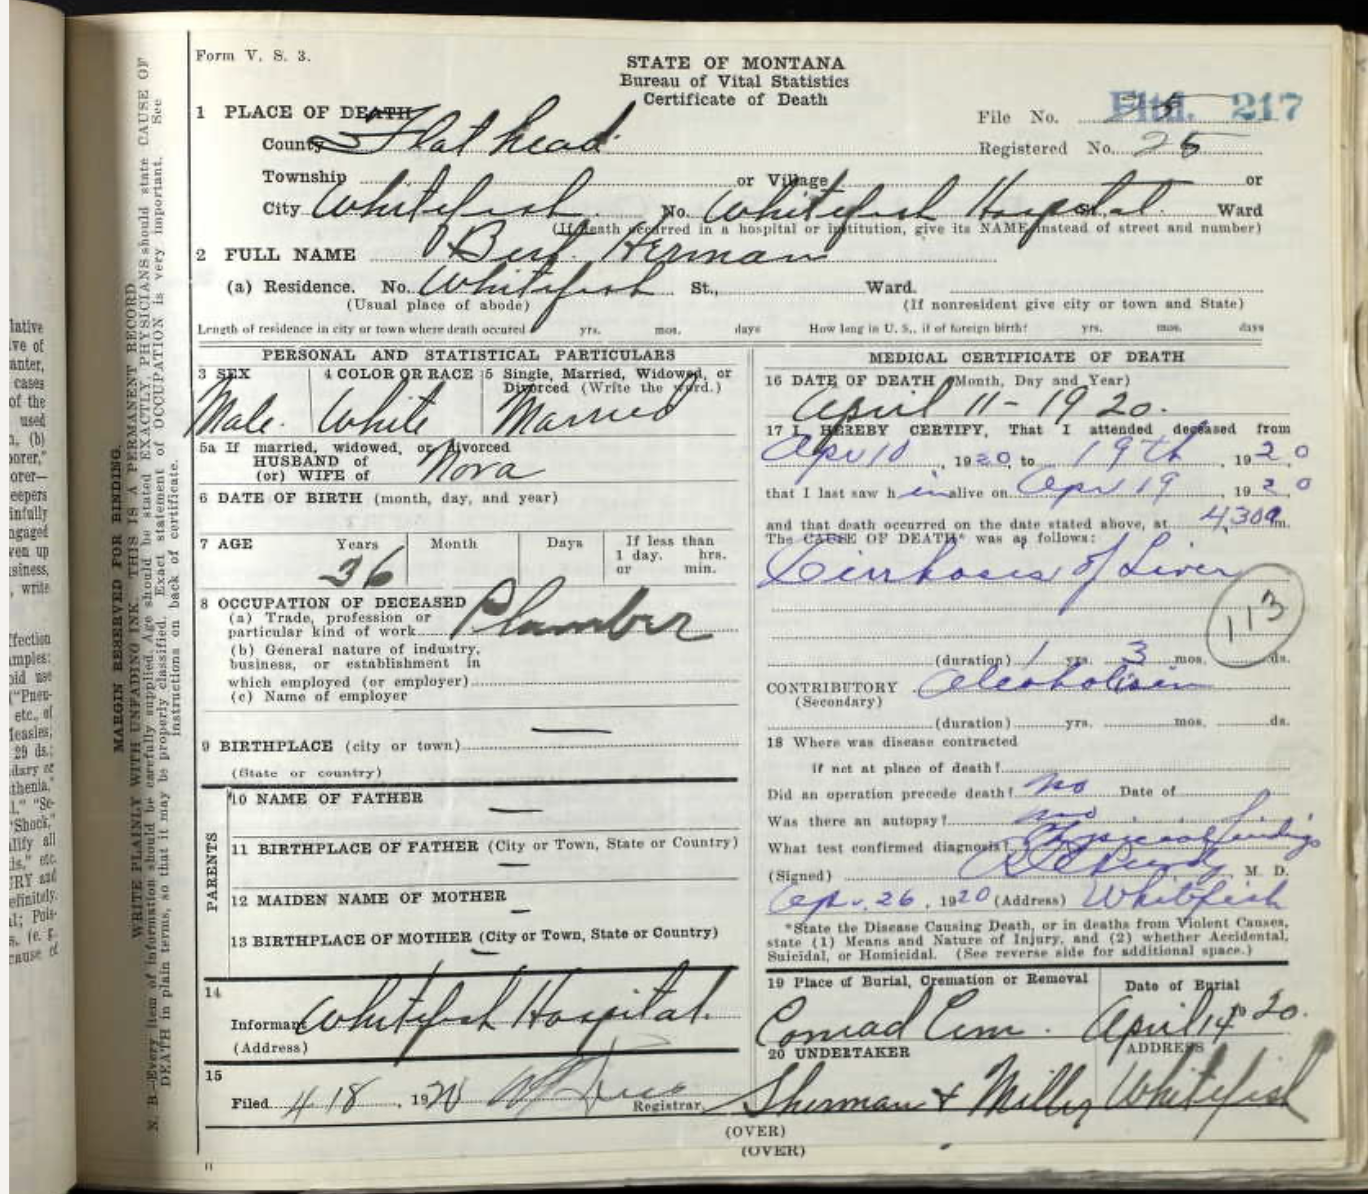 Form V. S. 3.
STATE OF MONTANA
Bureau of Vital Statistics
Certificate of Death
1 PLACE OF DEATH
File No. Fltd. 217
County Flathead
Registered No. 25
Township or Village or
City Whitefish No. Whitefish Hospital St., Ward
(If death occurred in a hospital or institution, give its NAME instead of street and number)
2 FULL NAME Bert Herman
(a) Residence. No. Whitefish St., Ward.
(Usual place of abode) (If nonresident give city or town and State)
Length of residence in city or town where death occured yrs. mos. days How long in U. S., if of foreign birth? yrs. mos. days
PERSONAL AND STATISTICAL PARTICULARS
3 SEX 4 COLOR OR RACE 5 Single, Married, Widowed, or
Divorced (Write the word.)
Male. White Married
5a If married, widowed, or divorced
HUSBAND of
(or) WIFE of Nora
6 DATE OF BIRTH (month, day, and year)
7 AGE Years Month Days If less than
1 day. hrs.
or min.
36
8 OCCUPATION OF DECEASED
(a) Trade, profession or
particular kind of work Plumber
(b) General nature of industry,
business, or establishment in
which employed (or employer)
(c) Name of employer
9 BIRTHPLACE (city or town)
(State or country)
PARENTS
10 NAME OF FATHER
11 BIRTHPLACE OF FATHER (City or Town, State or Country)
12 MAIDEN NAME OF MOTHER
13 BIRTHPLACE OF MOTHER (City or Town, State or Country)
14
Informant Whitefish Hospital.
(Address)
15
Filed 4 18, 1920 Registrar
MEDICAL CERTIFICATE OF DEATH
16 DATE OF DEATH (Month, Day and Year)
April 11-1920.
17 I HEREBY CERTIFY, That I attended deceased from
Apr 10, 1920 to 19th, 1920
that I last saw him alive on Apr 19 1920
and that death occurred on the date stated above, at 4,30a m.
The CAUSE OF DEATH* was as follows:
Cirrhosis of Liver
113
(duration) 1 yrs. 3 mos. ds.
CONTRIBUTORY Alcoholism
(Secondary)
(duration) yrs. mos. ds.
18 Where was disease contracted
if not at place of death?
Did an operation precede death? no Date of
Was there an autopsy? no
What test confirmed diagnosis? Physical findings
(Signed) , M. D.
Apr. 26, 1920 (Address) Whitefish
*State the Disease Causing Death, or in deaths from Violent Causes,
state (1) Means and Nature of Injury, and (2) whether Accidental,
Suicidal, or Homicidal. (See reverse side for additional space.)
19 Place of Burial, Cremation or Removal Date of Burial
Conrad Cem. April 14th 20.
20 UNDERTAKER ADDRESS
Sherman & Miller Whitefish
(OVER)
(OVER)
11
MARGIN RESERVED FOR BINDING.
WRITE PLAINLY WITH UNFADING INK. THIS IS A PERMANENT RECORD
N. B.—Every item of information should be carefully supplied. Age should be stated EXACTLY, PHYSICIANS should state CAUSE OF
DEATH in plain terms, so that it may be properly classified. Exact statement of OCCUPATION is very important. See
instructions on back of certificate.